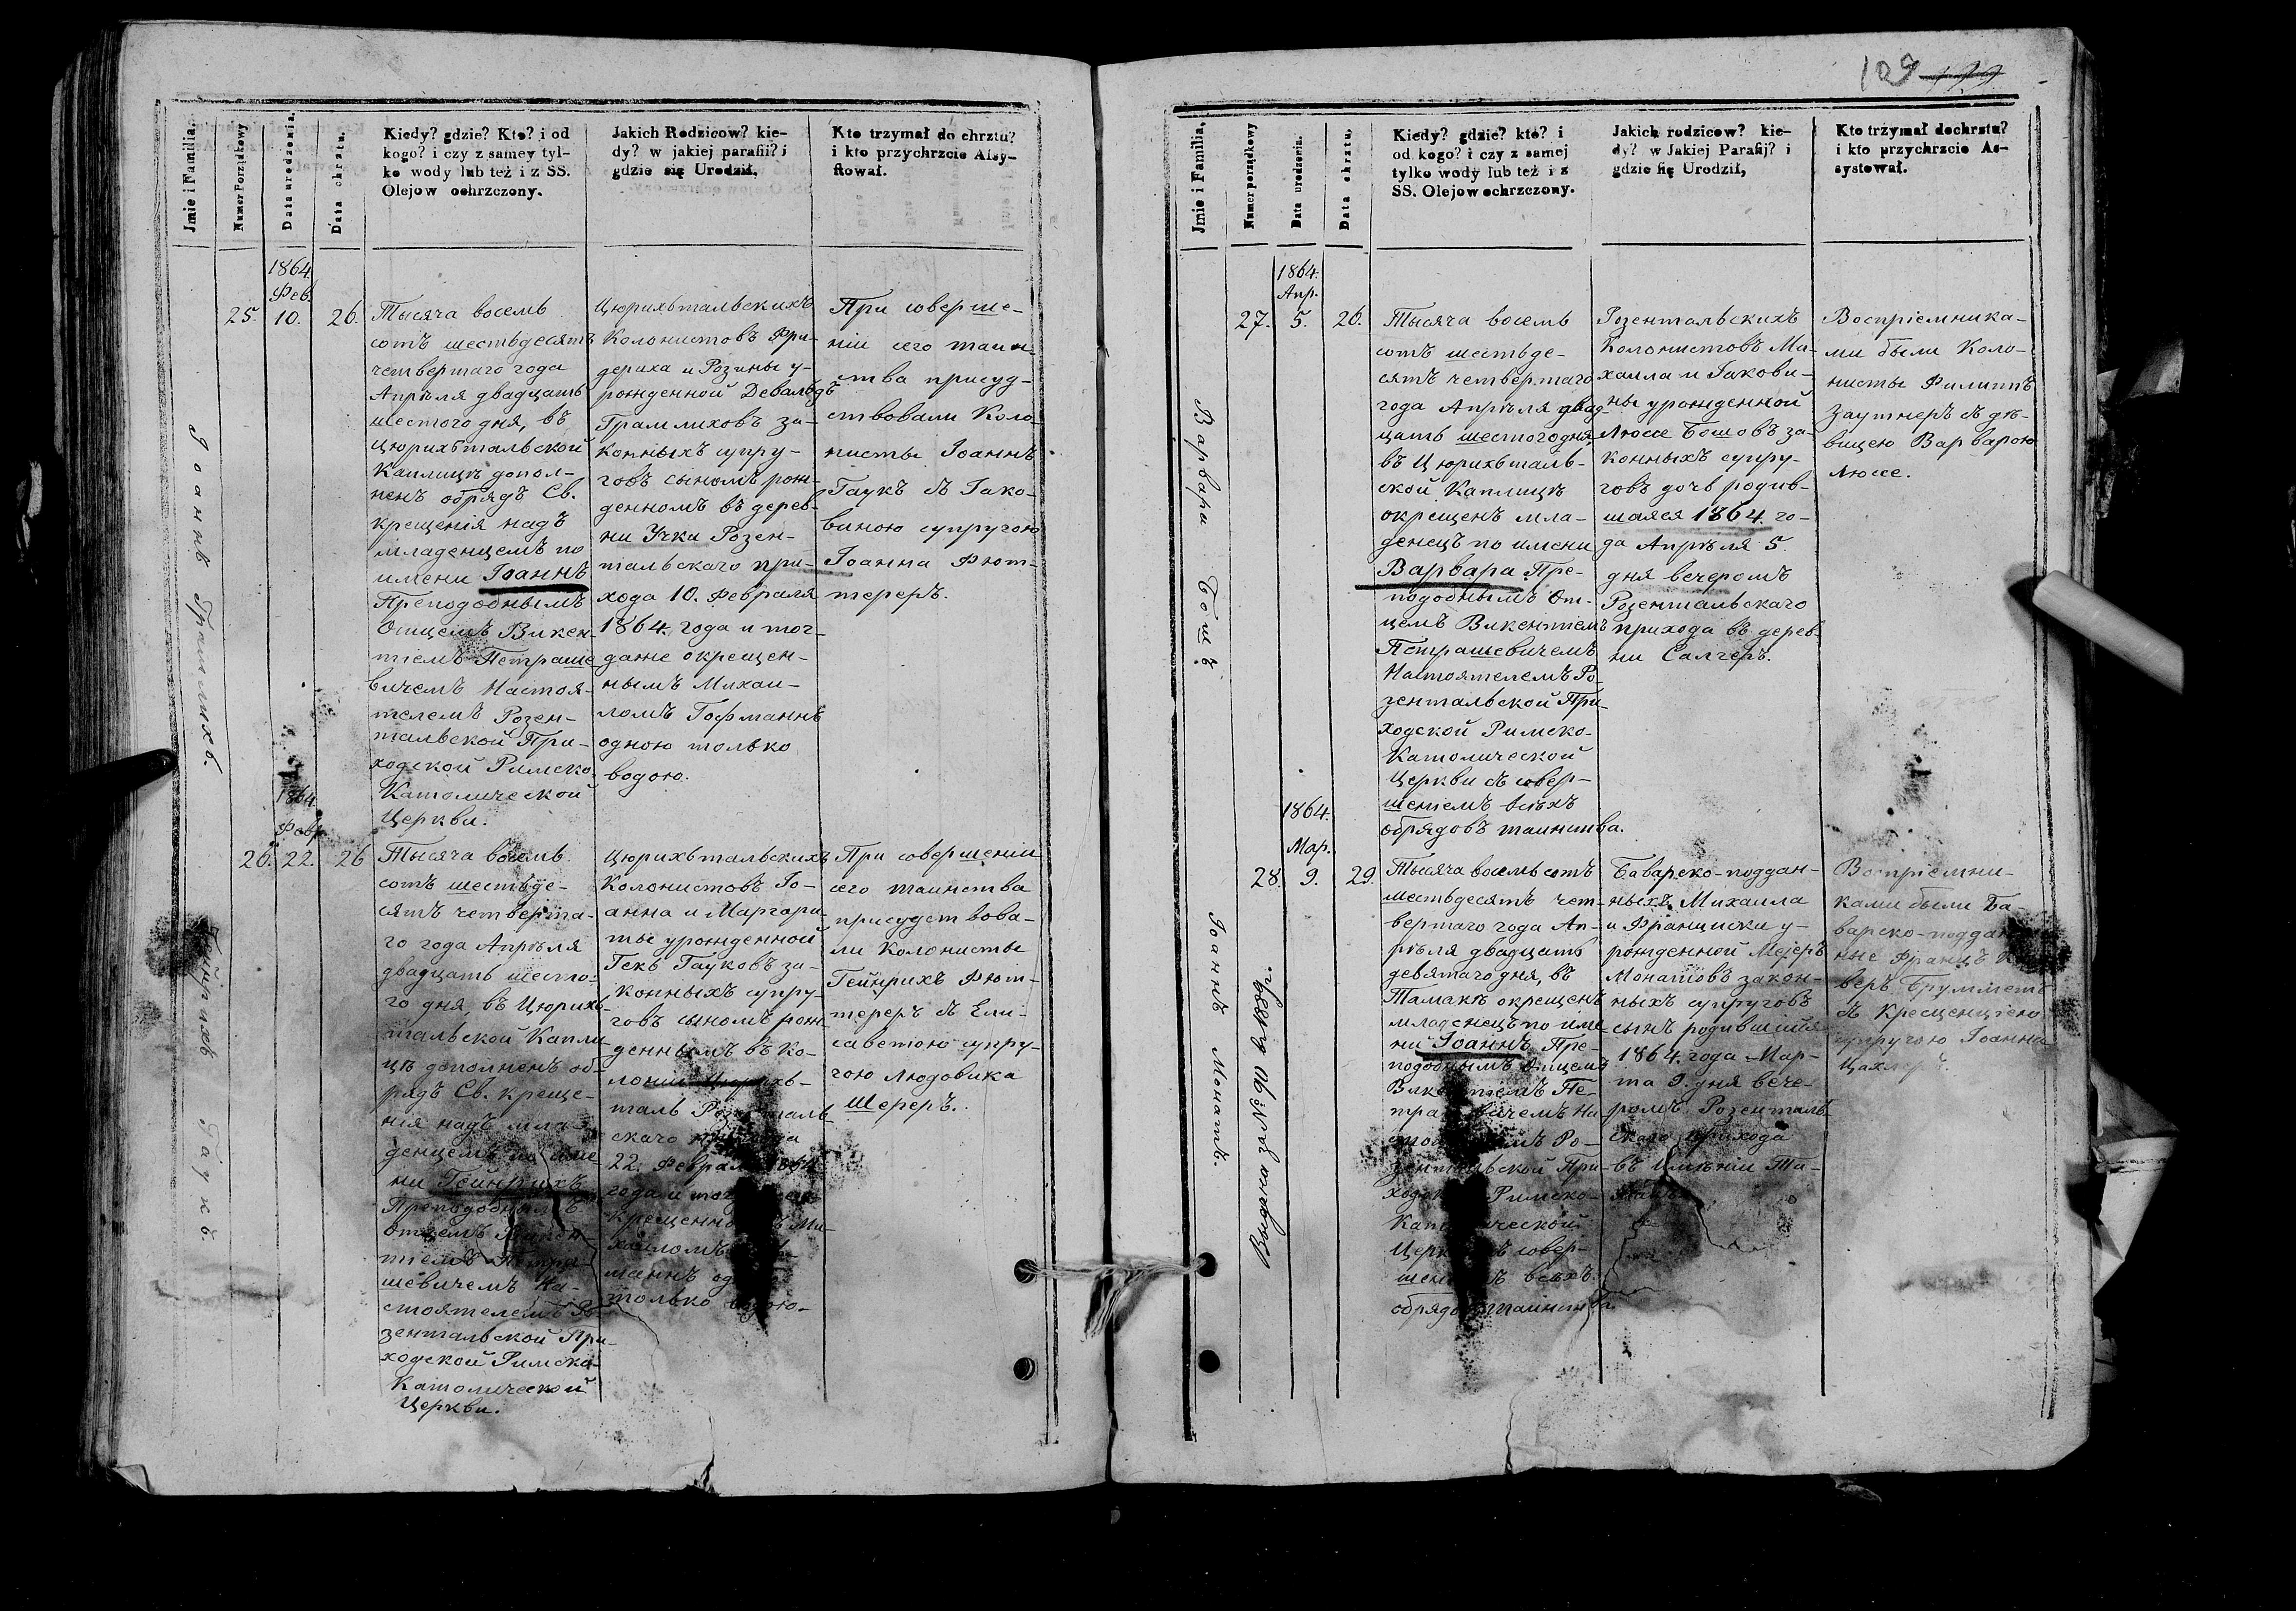 109
Jmie i Familia.
Numer Porządkowy
Data urodzenia.
Data chrztu.
Kiedy? gdzie? Kto? i od
kogo? i czy z samey tyl-
ko wody lub też i z SS.
Olejow ochrzczony.
Jakich Rodzicow? kie-
dy? w jakiej parafii? i
gdzie się Urodził.
Kto trzymał do chrztu?
i kto przychrzcie Afsy-
ftował.
Іоаннъ Грамлихъ.
1864.
Фев.
25.
10.
26.
Тысяча восемь
сотъ шестьдесятъ
четвертаго года
Апрѣля двадцать
шестого дня, въ
Цюрихтальской
Каплицѣ допол-
ненъ обрядъ Св.
крещенія надъ
младенцемъ по
имени Іоаннъ
Преподобнымъ
Отцемъ Викен-
тіемъ Петраше
вичемъ Настоя-
телемъ Розен-
тальской При-
ходской Римско-
Католической
Церкви.
Цюрихтальскихъ
Колонистовъ Фри-
дериха и Розины у-
рожденной Девальдъ
Грамлиховъ за-
конныхъ супру-
говъ сыномъ рож-
денномъ въ дерев-
ни Учки Розен-
тальскаго при-
хода 10. Февраля
1864. года и тог-
даже окрещен-
нымъ Михаи-
ломъ Гофманнъ
одною только
водою.
При соверше-
ніи сего таин-
ства присуд-
ствовали Коло-
нисты Іоаннъ
Гаукъ съ Іако-
биною супругою
Іоанна Фют-
тереръ.
Гейнрихъ Гаукъ
1864
Февр.
26.
22.
26
Тысяча восемь
сотъ шестьде-
сятъ четверта-
го года Апрѣля
двадцать шесто-
го дня, въ Цюрихъ-
тальской Капли
цѣ дополненъ об-
рядъ Св. креще-
нія надъ мла-
денцемъ по име
ни Гейнрихъ
Преподобнымъ
Отцемъ Викен-
тіемъ Петра-
шевичемъ На-
стоятелемъ Ро
зентальской При-
ходской Римско-
Католической
Церкви.
Цюрихтальскихъ
Колонистовъ Іо-
анна и Маргари-
ты урожденной
Гекъ Гауковъ за-
конныхъ супру-
говъ сыномъ рож-
деннымъ въ ко-
лоніи Цюрихъ-
таль Розенталь
скаго прихода
22. Февраля 1864
года и
Ми-
хаиломъ
маннъ
только водою.
При совершеніи
сего таинства
присудствова-
ли Колонисты
Гейнрихъ Фют-
тереръ съ Ели-
саветою супру-
гою Людовика
Шереръ.
Jmie i Familia.
Numer porządkowy
Data urodzenia.
Data chrztu.
Kiedy? gdzie? kto? i
od kogo? i czy z samej
tylko wody lub też i z
SS. Olejow ochrzczony.
Jakich rodzicow? kie-
dy? w Jakiej Parafij? i
gdzie fię Urodził,
Kto trzymał dochrztu?
i kto przychrzcie As-
systował.
Варвара Бошъ
1864.
Апр.
27.
5.
26.
Тысяча восемь
сотъ шестьде-
сятъ четвертаго
года Апрѣля двад-
цать шестого дня
въ Цюрихталь-
ской Каплицѣ
окрещенъ мла-
денецъ по имени
Варвара Пре-
подобнымъ От-
цемъ Викентіемъ
Петрашевичемъ
Настоятелемъ Ро-
зентальской При-
ходской Римско-
Католической
Церкви съ совер-
шеніемъ всѣхъ
обрядовъ таинства.
Розентальскихъ
Колонистовъ Ми-
хаила и Іакоби-
ны урожденной
Люссе Бошовъ за-
конныхъ супру-
говъ дочь родив-
шаяся 1864. го-
да Апрѣля 5.
дня вечеромъ
Розентальскаго
прихода въ дерев-
ни Салгеръ.
Воспріемника-
ми были Коло-
нисты Филиппъ
Заутнеръ съ дѣ-
вицею Варварою
Люссе.
Іоаннъ Монатъ.
Выдана за № 96 въ 1889 г.
1864.
Мар.
28.
9.
29.
Тысяча восемь сотъ
шестьдесятъ чет-
вертаго года Ап-
рѣля двадцать
девятаго дня, въ
Тамакѣ окрещенъ
младенецъ по име
ни Іоаннъ Пре-
подобнымъ Отцемъ
Викентіемъ Пе-
На-
Ро-
зентальской При-
Римско-
Католической
Церкви съ совер-
шеніемъ всѣхъ
обрядовъ таинства
Баварско-поддан-
ныхъ Михаила
и Франциски у-
рожденной Мейеръ
Монатовъ закон-
ныхъ супруговъ
сынъ родившійся
1864. года Мар-
та 9. дня вече-
ромъ Розенталь-
скаго прихода
въ имѣніи Та-
Воспріемни-
ками были Ба-
варско-поддан-
ные Францъ
Брумметъ
съ Кресценціею
супругою Іоанна